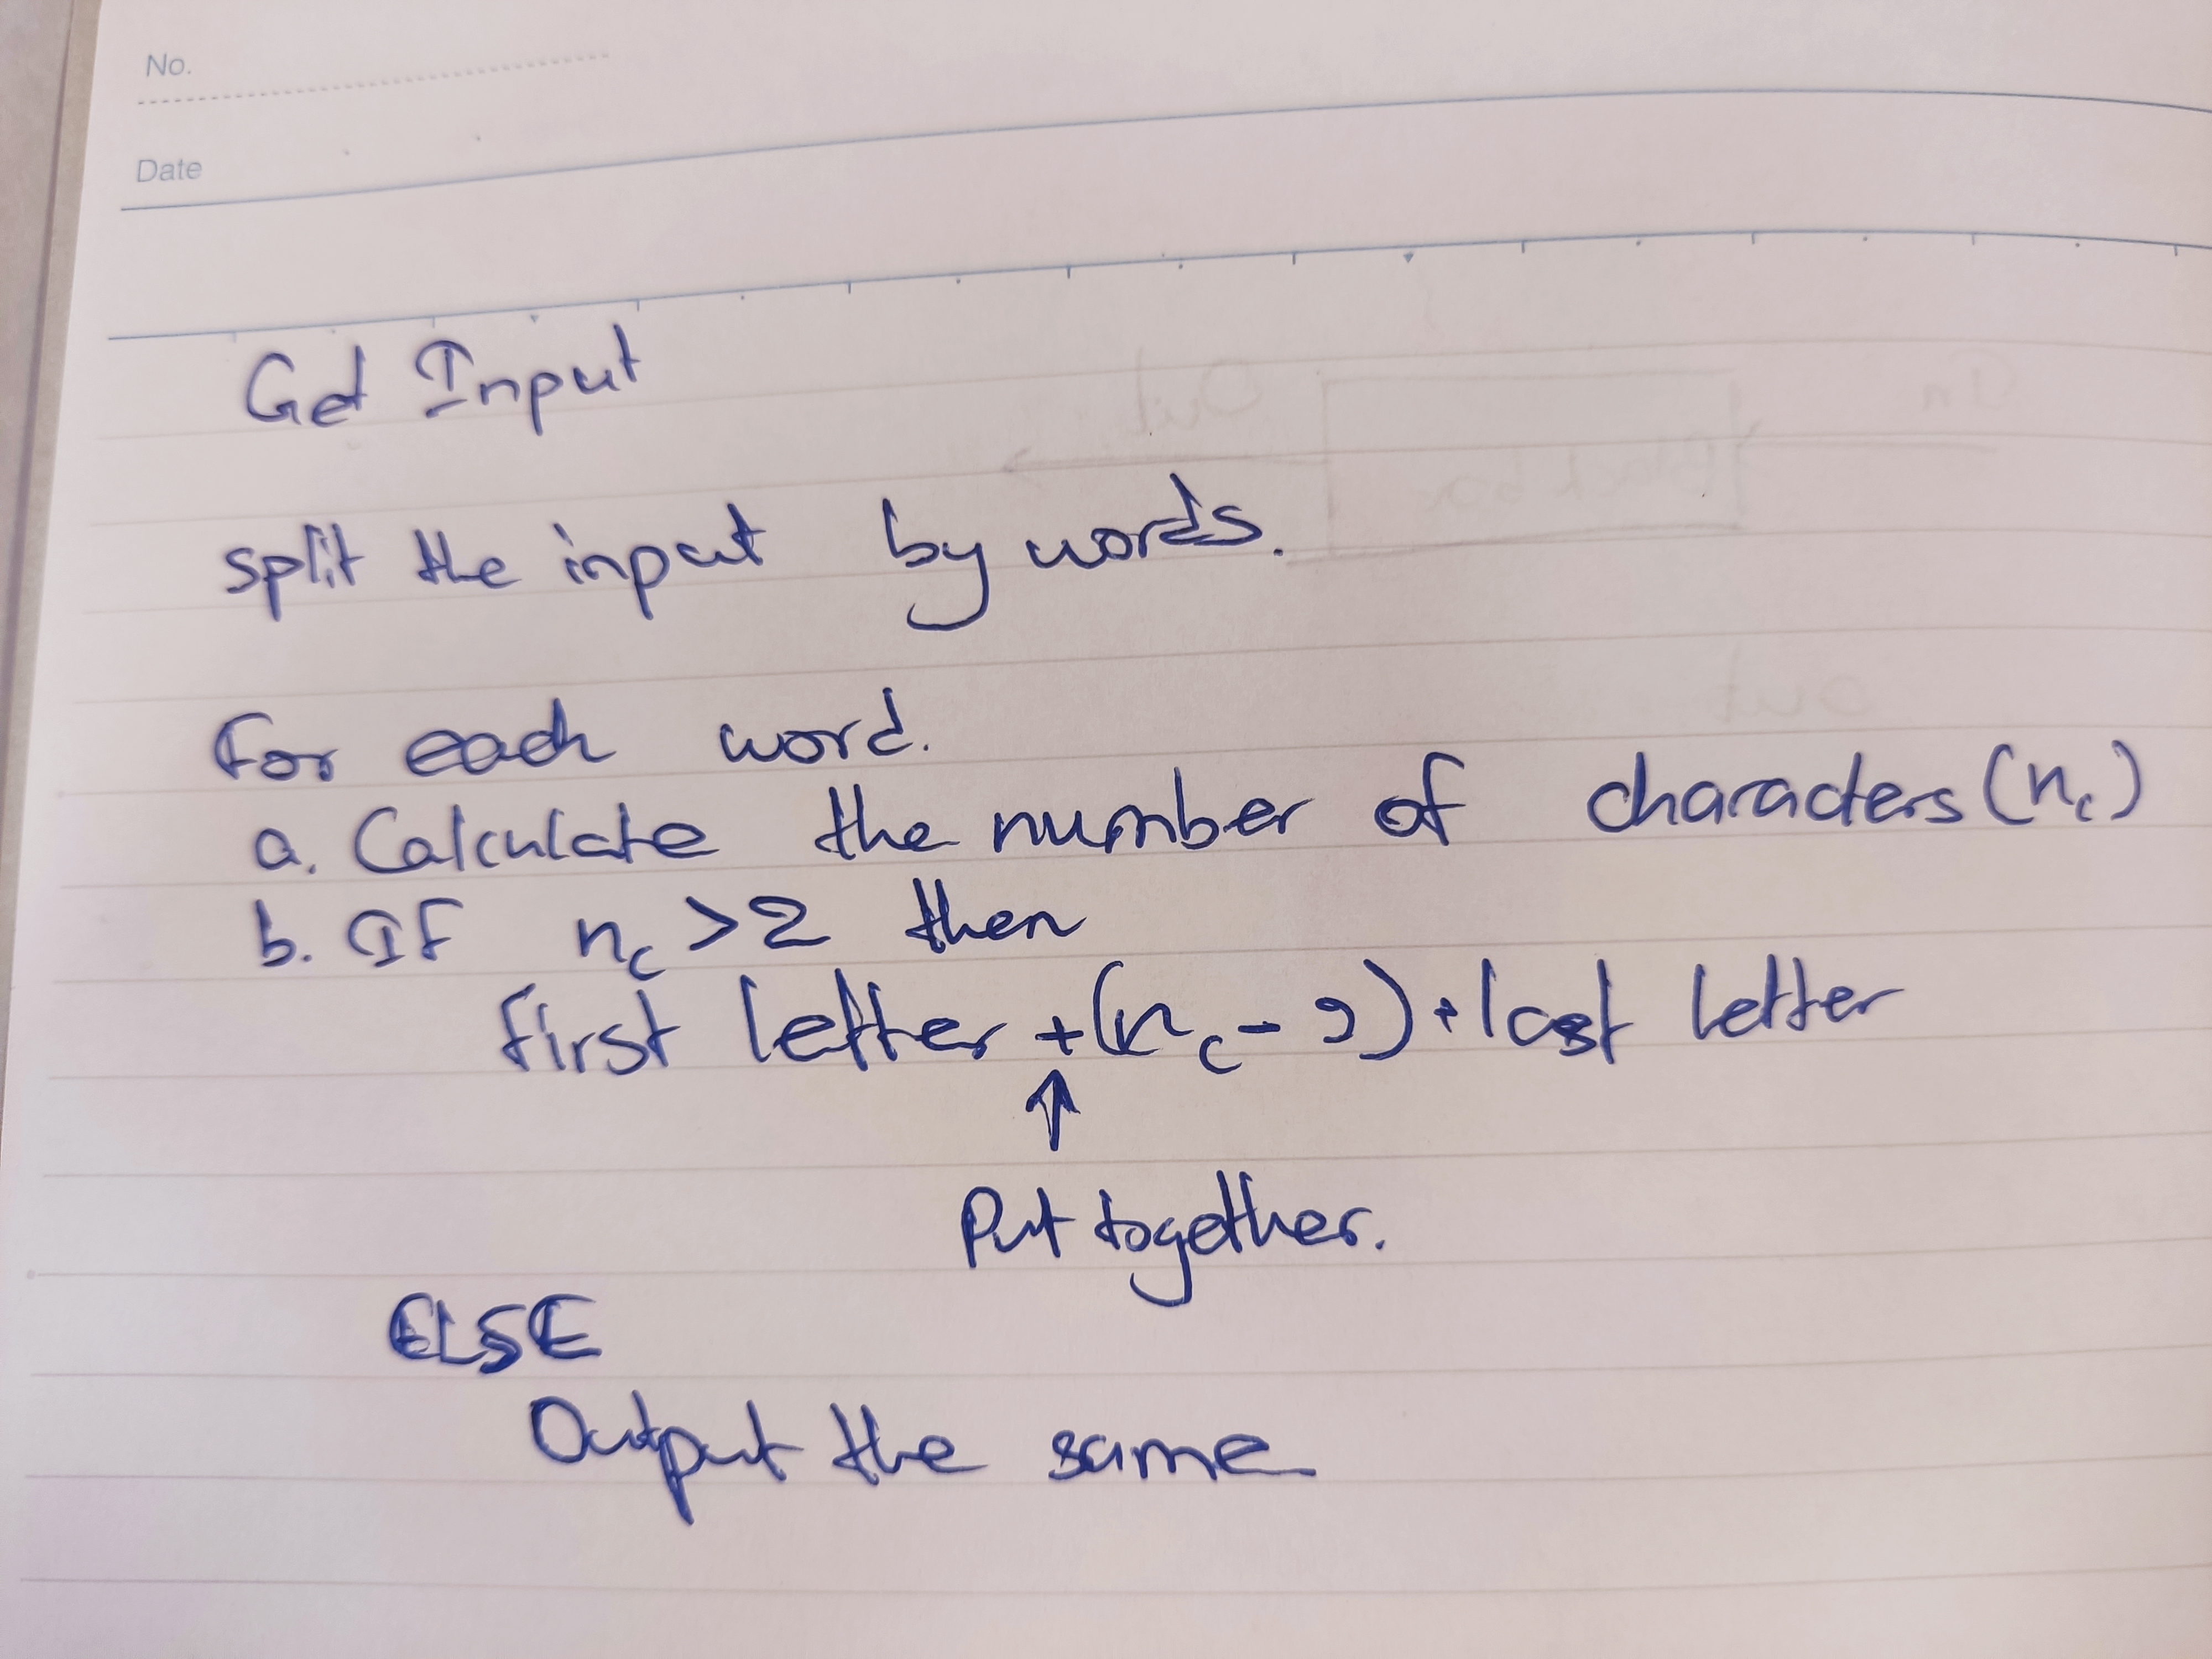 No.
Date
Get Input
split the input by words.
For each word.
a. Calculate the number of characters (nc)
b. If nc > 2 then
first letter + (nc - 2) + last letter
↑
Put together.
ELSE
Output the same